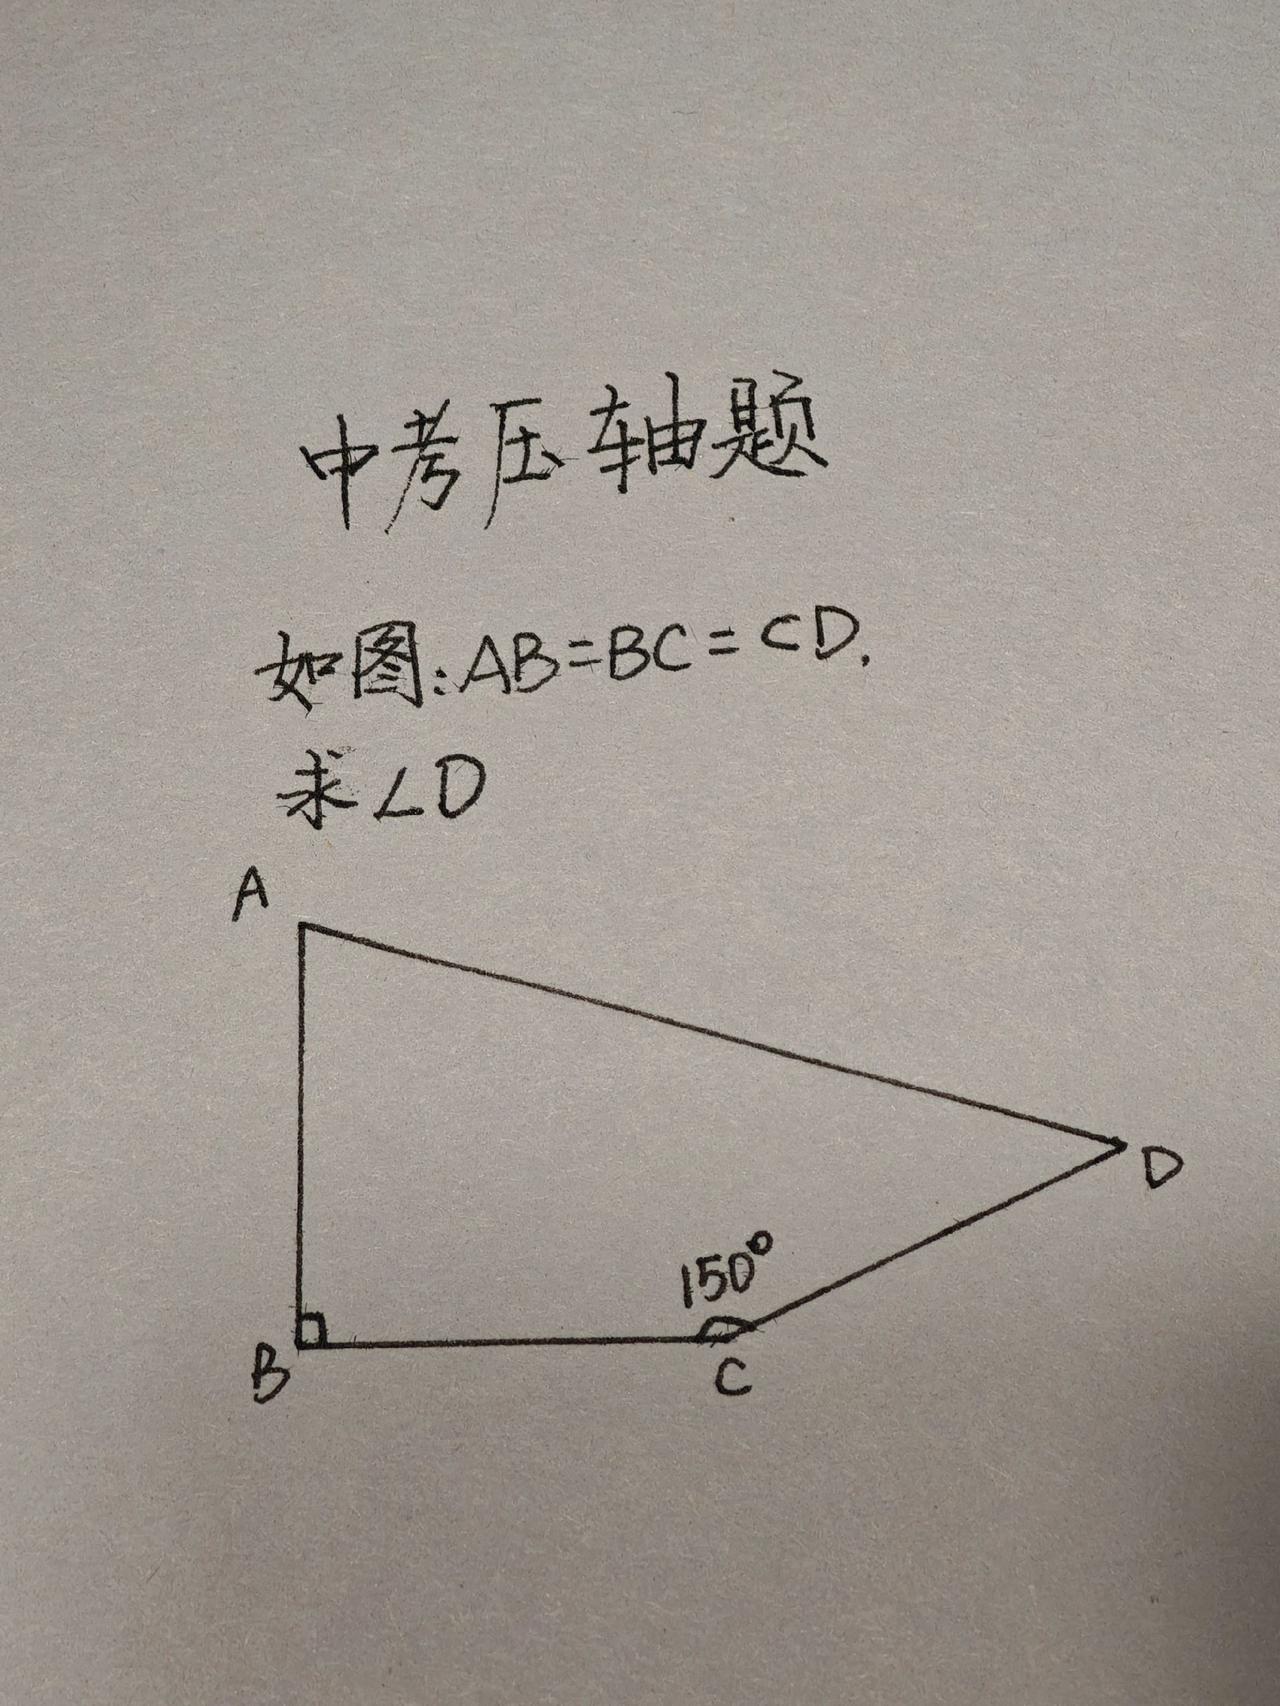 中考压轴题
如图:AB=BC=CD.
求∠D
A
D
150°
B
C